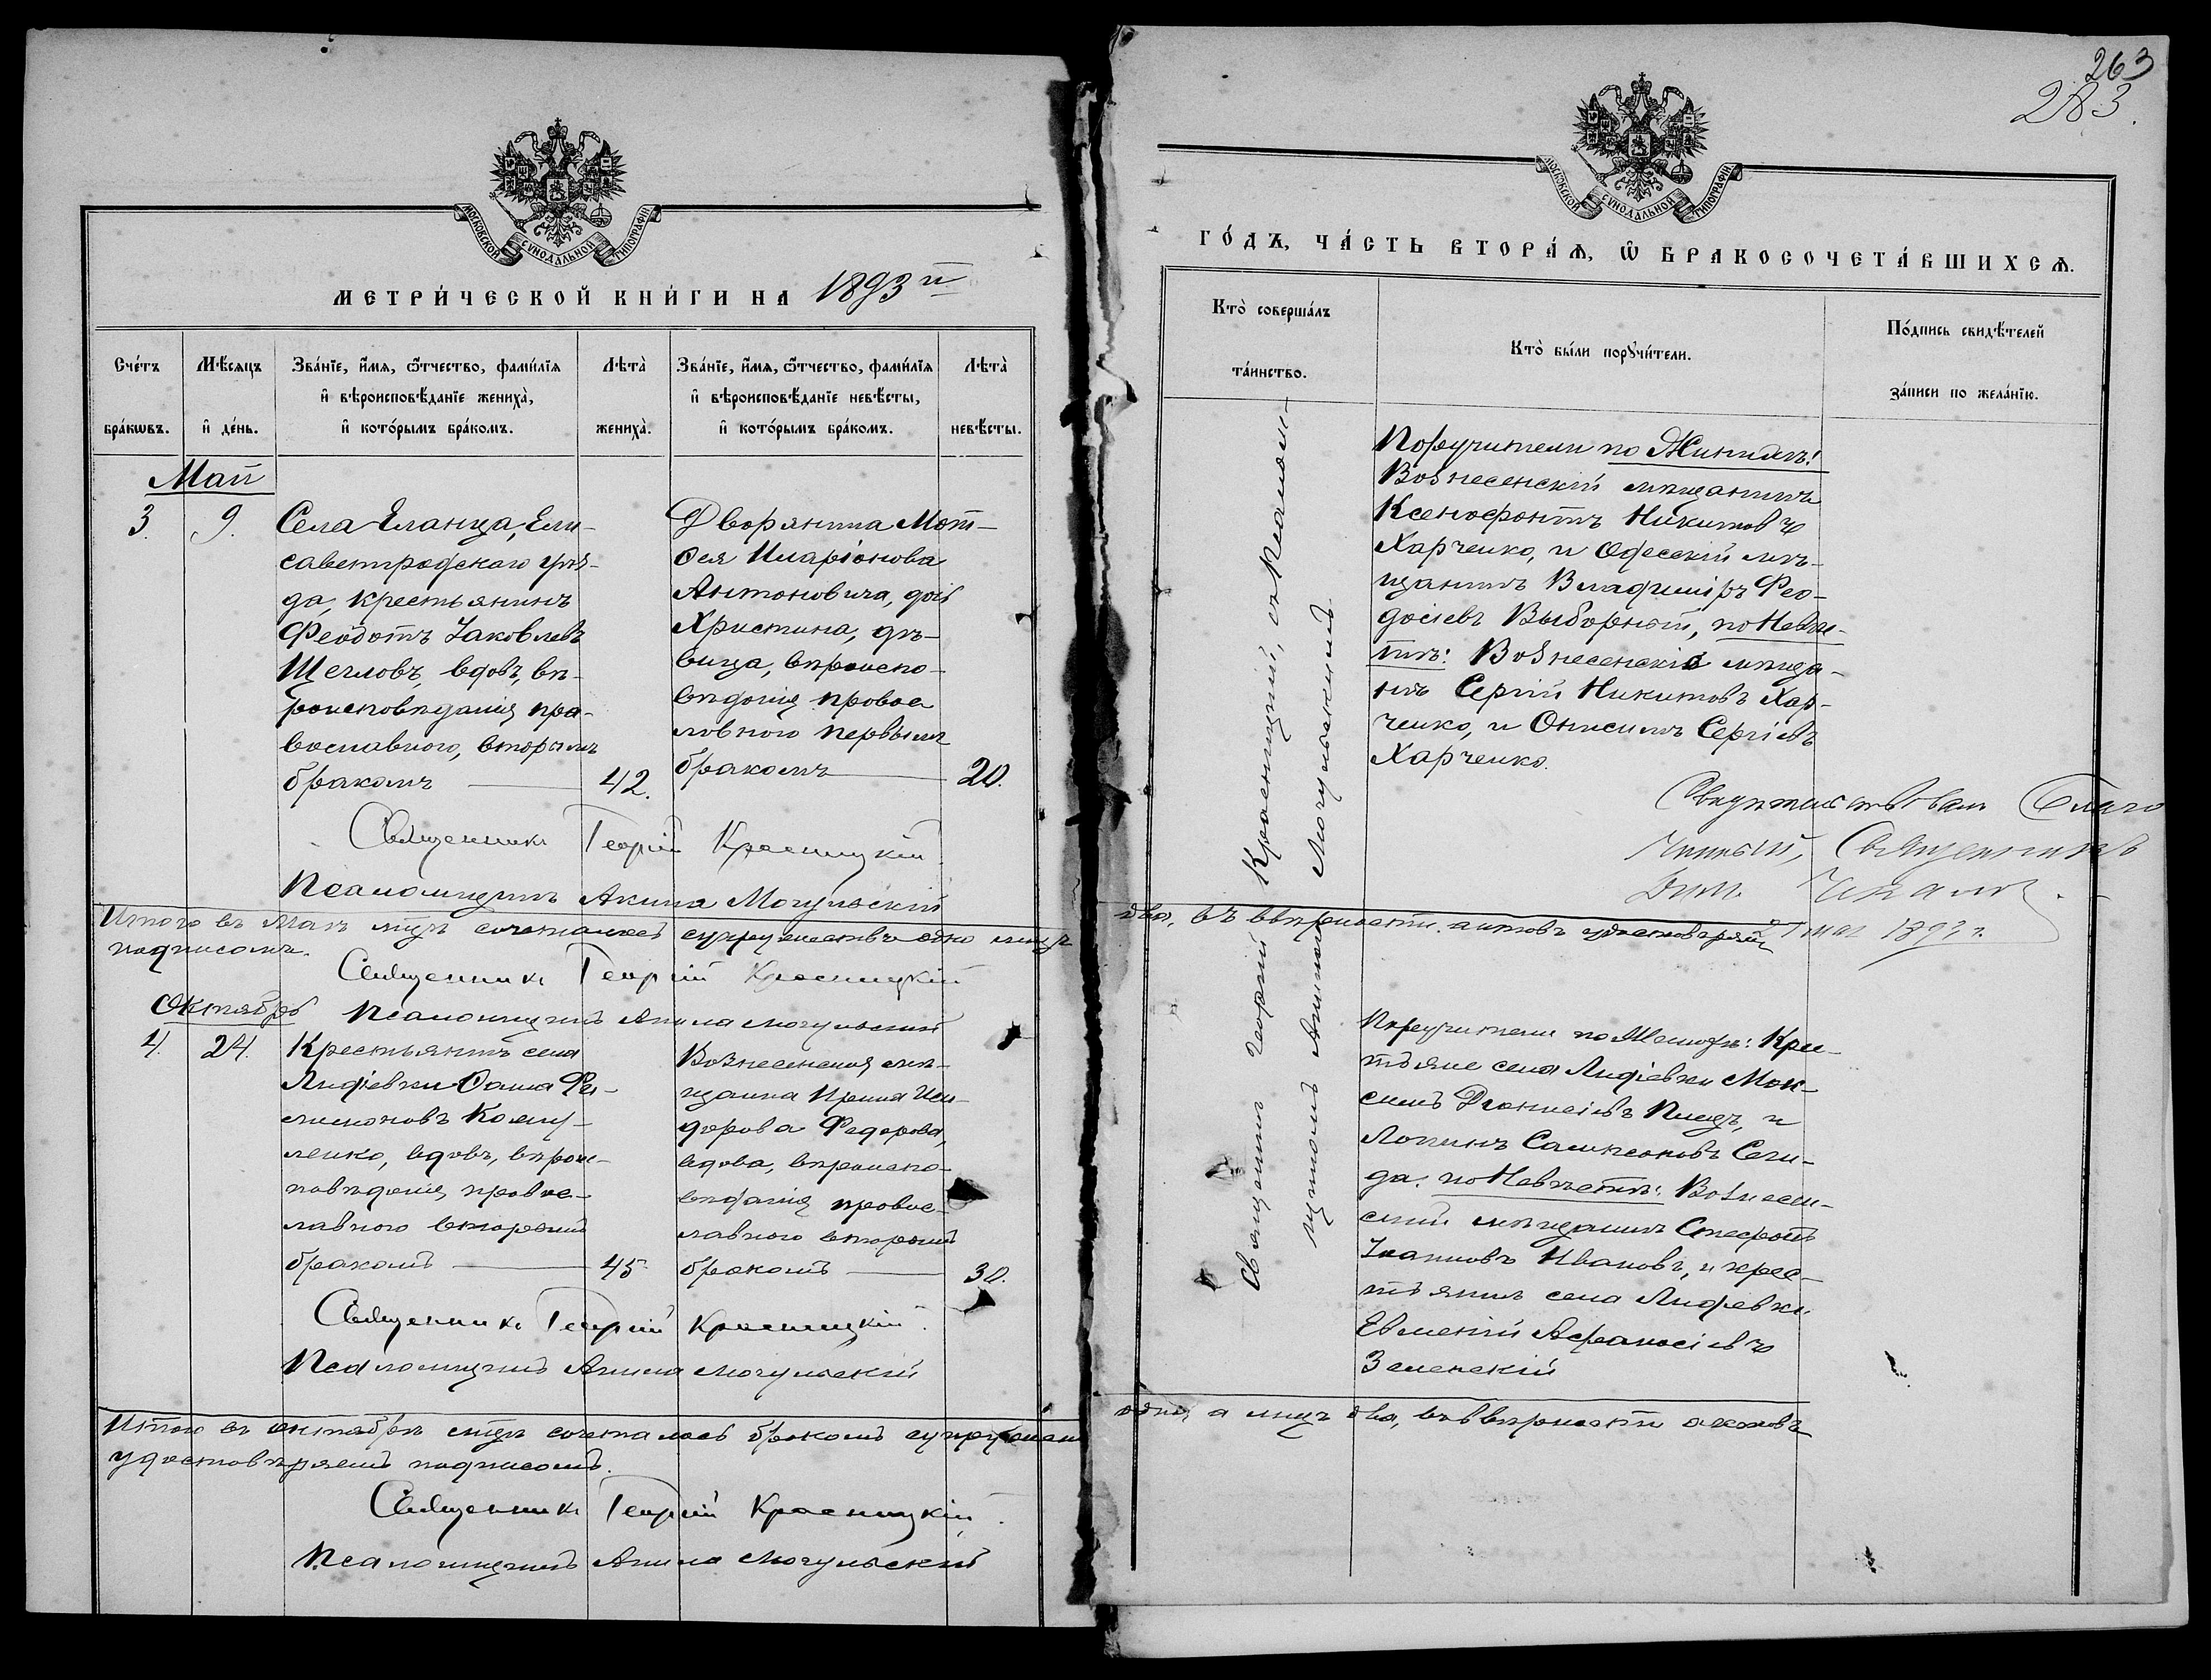 МОСКОВСКОЙ СѴНОДАЛЬНОЙ ТИПОГРАФІИ
МЕТРИ́ЧЕСКОЙ КНИ́ГИ НА 1893й
Сче́тъ бра́кѡвъ.
Мѣ́сяцъ и҆ де́нь.
Зва́нїе, и҆́мѧ, ѻ҆́тчество, фамѝлїѧ
и҆ вѣроисповѣ́данїе женихà,
и҆ кото́рымъ бра́комъ.
Лѣтà женихà.
Зва́нїе, и҆́мѧ, ѻ҆́тчество, фамѝлїѧ
и҆ вѣроисповѣ́данїе невѣ́сты,
и҆ кото́рымъ бра́комъ.
Лѣтà невѣ́сты.
Май
3. 9.
Села Еланца, Ели-
саветградскаго уѣз-
да, крестьянинъ
Феодотъ Іаковлевъ
Щегловъ, вдовъ, вѣ-
роисповѣданія пра-
вославного, вторымъ
бракомъ
42.
Дворянина Мат-
ѳея Иларіонова
Антоновича, дочь
Христина, дѣ-
вица, вѣроиспо-
вѣданія правос
лавного первымъ
бракомъ
20.
Священникъ Георгій Красницкій.
Псаломщикъ Акила Могульскій
Итого въ маѣ мцѣ сочеталось супружествъ одно лицъ
подписомъ.
Священникъ Георгій Красницкій
Октябрь
Псаломщикъ Акила Могульскій
4. 24.
Крестьянинъ села
Лидіевки Ѳома Фи-
лимоновъ
ленко, вдовъ, вѣрои-
повѣданія правос-
лавного вторымъ
бракомъ
45
Вознесенская мѣ-
щанка Ирина Иси-
дорова Федорова,
вдова, вѣроиспо-
вѣданія правос-
лавного вторымъ
бракомъ
30.
Священникъ Георгій Красницкій.
Псаломщикъ Акила Могульскій
Итого въ октябрѣ мцѣ сочеталось бракомъ
удостовѣряемъ подписомъ.
Священникъ Георгій Красницкій.
Псаломщикъ Акила Могульскій
263
283.
МОСКОВСКОЙ СѴНОДАЛЬНОЙ ТИПОГРАФІИ
ГО́ДЪ, ЧА́СТЬ ВТОРА́Ѧ, Ѡ҆ БРАКОСОЧЕТА́ВШИХСѦ.
Кто̀ соверша́лъ
та́инство.
Кто̀ бы́ли порꙋчи́тели.
По́дпись свидѣ́телей
за́писи по жела́нїю.
Священникъ Георгій Красницкій, съ Псалом-
щикомъ Акилою Могульскимъ.
Поручители по Жениху:
Вознесенскій мѣщанинъ
Ксенофонтъ Никитовъ
Харченко, и Одесскій мѣ-
щанинъ Владиміръ Фео-
досіевъ Выборный, по Невѣс-
тѣ: Вознесенскіе мѣща-
не Сергій Никитовъ Хар-
ченко, и Онисимъ Сергіевъ
Харченко.
Свидѣтельствовалъ Благо
чинный, Священникъ
два, въ вѣрности актовъ удостовѣряемъ
мая 1893 г.
Поручители по Женихѣ: Крес-
тьяне села Лидіевки Мак-
симъ Діонисіевъ и
Логинъ Самисоновъ
да. по Невѣстѣ: Вознесен-
скій мѣщанинъ Стефанъ
Іоанновъ Ивановъ, и крес-
тьянинъ села Лидіевки
Евмений Афанасіевъ
Зеленскій
одно, а лицъ два, въ вѣрности актовъ